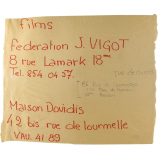 films
federation J. VIGOT
8 rue Lamark 18eme
Tel. 254 04 57.
Maison Dovidis
42 bis rue de Lourmelle
VAU. 41 89